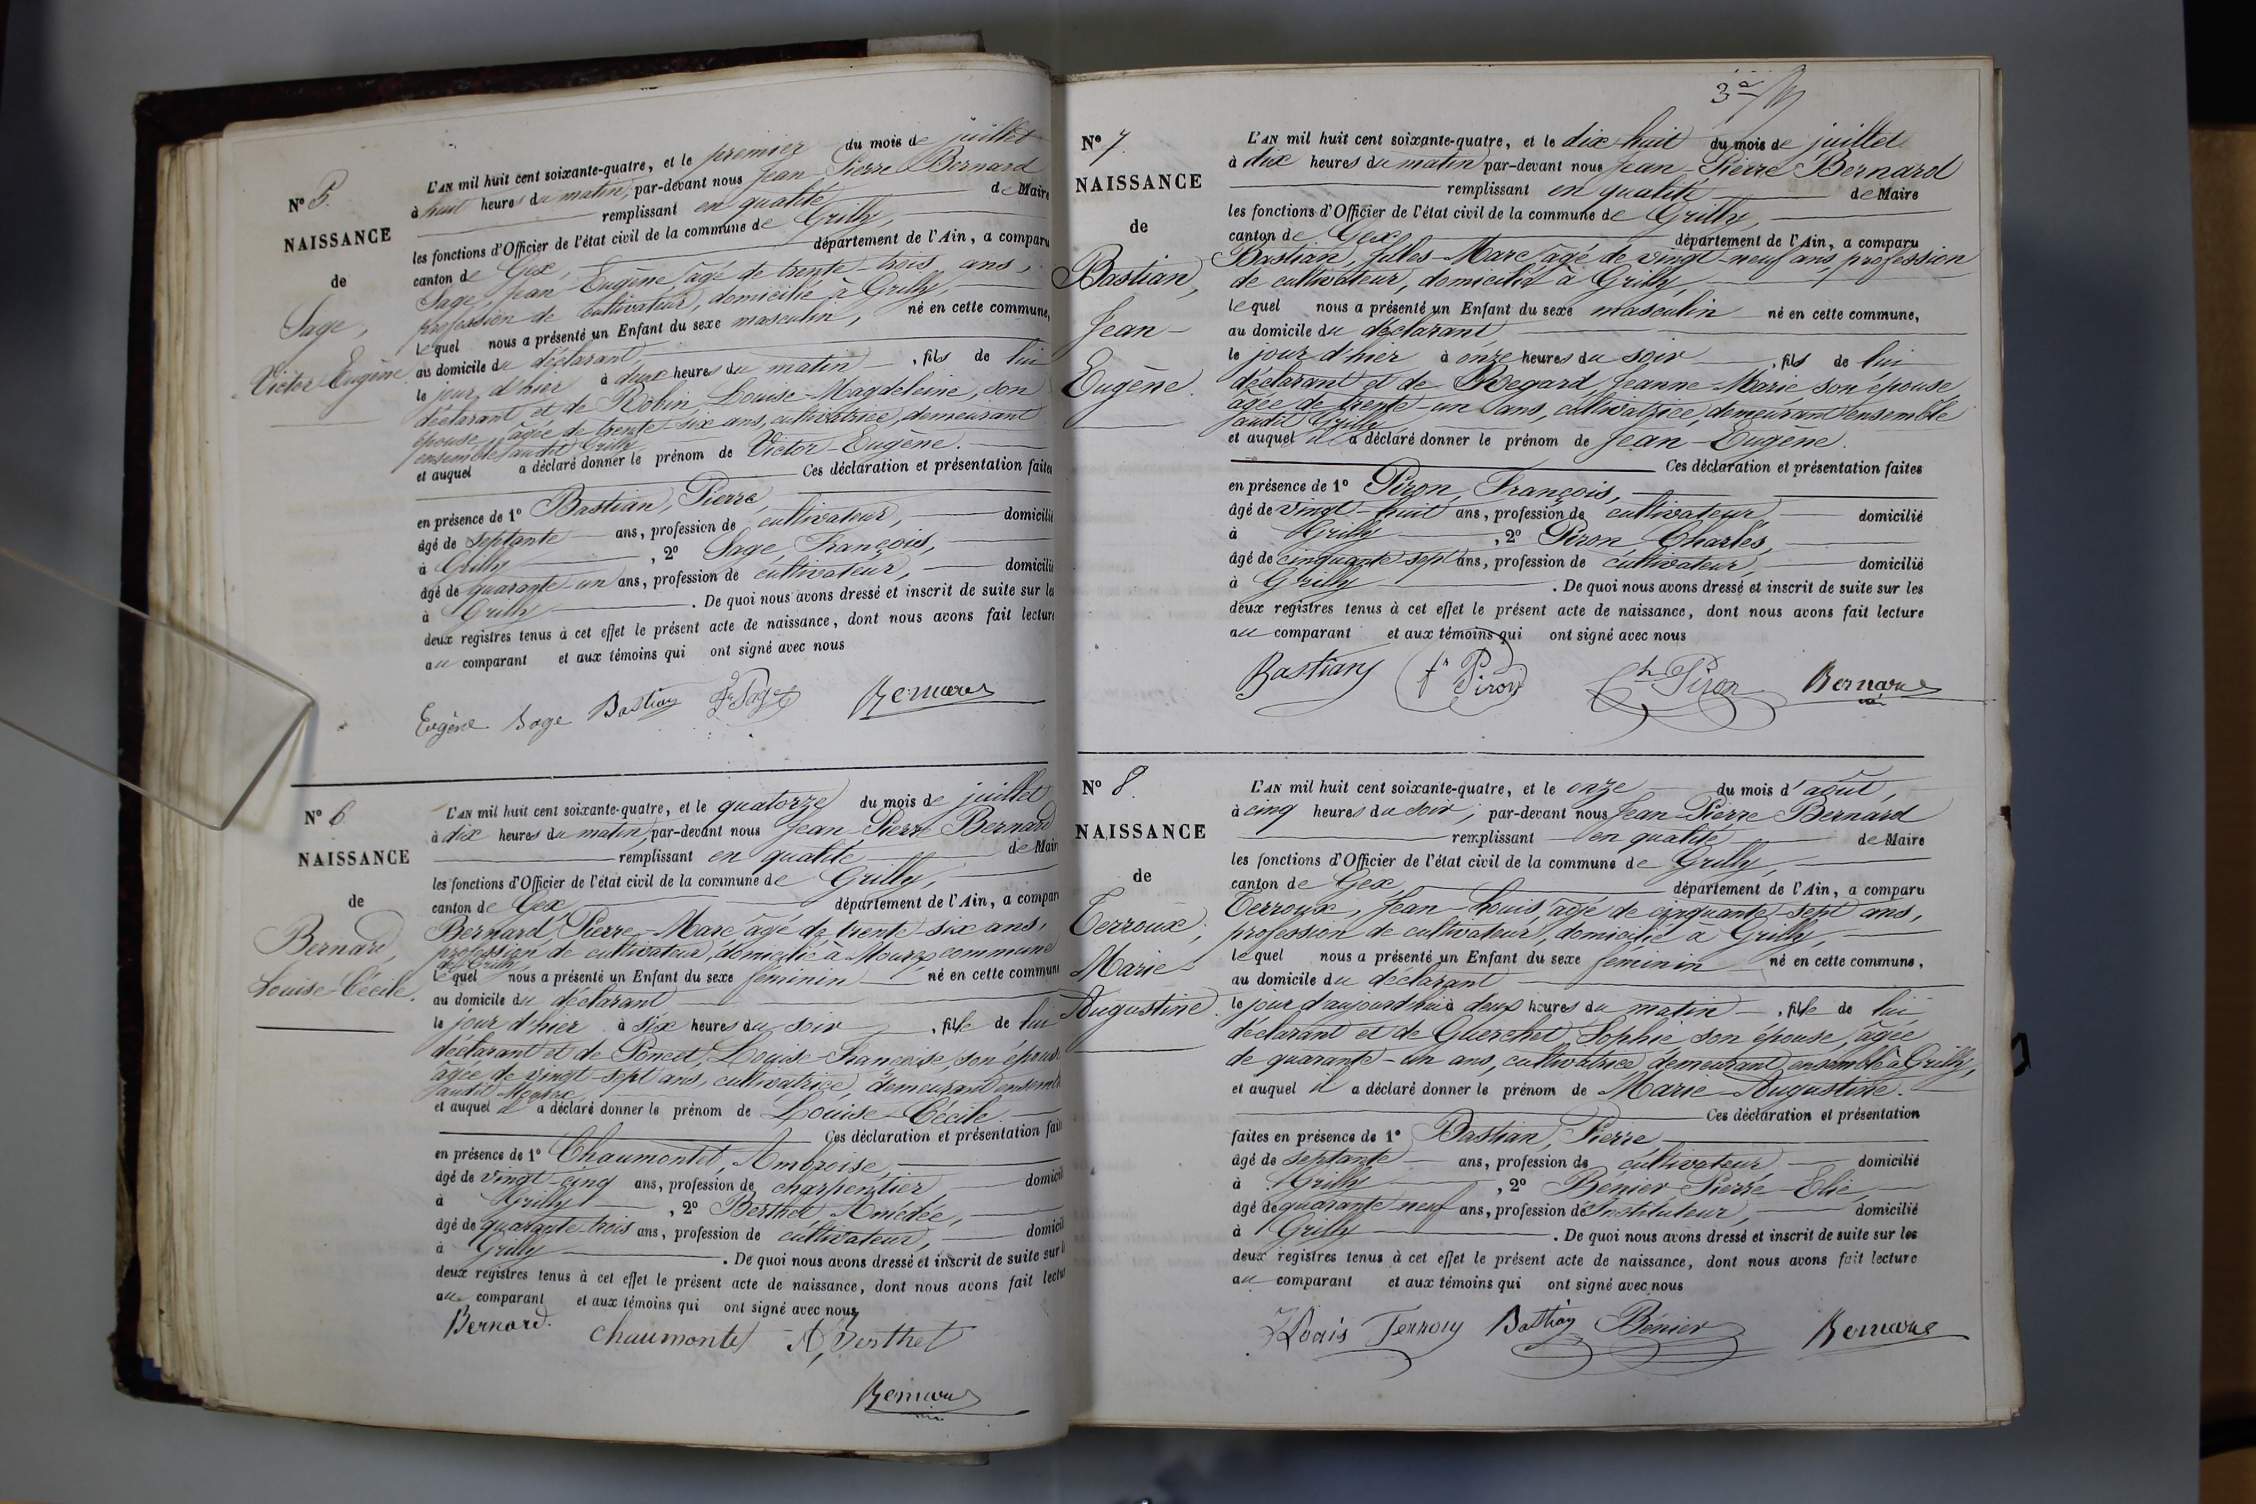 N° 5.
NAISSANCE
de
Sage,
Victor-Eugène
L'AN mil huit cent soixante-quatre, et le premier du mois de juillet
à huit heures du matin, par-devant nous Jean-Pierre Bernard
remplissant en qualité de Maire
les fonctions d'Officier de l'état civil de la commune de Grilly,
canton de Gex, département de l'Ain, a comparu
Sage, Jean-Eugène, âgé de trente-trois ans,
profession de cultivateur, domicilié à Grilly,
lequel nous a présenté un Enfant du sexe masculin, né en cette commune,
au domicile du déclarant
le jour d'hier à deux heures du matin, fils de lui
déclarant et de Robin, Louise-Magdeleine, son
épouse âgée de trente-six ans, cultivatrice, demeurant
ensemble audit Grilly
et auquel a déclaré donner le prénom de Victor-Eugène.
Ces déclaration et présentation faites
en présence de 1° Bastian, Pierre,
âgé de septante ans, profession de cultivateur, domicilié
à Grilly, 2° Sage, François,
âgé de quarante-un ans, profession de cultivateur, domicilié
à Grilly. De quoi nous avons dressé et inscrit de suite sur les
deux registres tenus à cet effet le présent acte de naissance, dont nous avons fait lecture
au comparant et aux témoins qui ont signé avec nous
Eugène Sage Bastian Fr Sage Bernard
N° 6
NAISSANCE
de
Bernard,
Louise-Cécile.
L'AN mil huit cent soixante-quatre, et le quatorze du mois de juillet
à dix heures du matin, par-devant nous Jean-Pierre Bernard
remplissant en qualité de Mair
les fonctions d'Officier de l'état civil de la commune de Grilly,
canton de Gex, département de l'Ain, a compar
Bernard, Pierre-Marc âgé de trente-six ans,
profession de cultivateur, domicilié à Mourex commune
de Grilly
lequel nous a présenté un Enfant du sexe féminin né en cette commune
au domicile du déclarant
le jour d'hier à six heures du soir, fille de lui
déclarant et de Poncet, Louise-Françoise, son épouse
âgée de vingt-sept ans, cultivatrice, demeurant ensemble
audit Mourex
et auquel il a déclaré donner le prénom de Louise-Cécile
Ces déclaration et présentation fait
en présence de 1° Chaumontet, Ambroise,
âgé de vingt-cinq ans, profession de charpentier, domicil
à Grilly, 2° Berthet Amédée,
âgé de quarante-trois ans, profession de cultivateur, domicil
à Grilly. De quoi nous avons dressé et inscrit de suite sur l
deux registres tenus à cet effet le présent acte de naissance, dont nous avons fait lectur
au comparant et aux témoins qui ont signé avec nous
Bernard. Chaumontet A, Berthet
Bernard
3e
N° 7.
NAISSANCE
de
Bastian,
Jean-
Eugène.
L'AN mil huit cent soixante-quatre, et le dix huit du mois de juillet
à dix heures du matin par-devant nous Jean-Pierre Bernard
remplissant en qualité de Maire
les fonctions d'Officier de l'état civil de la commune de Grilly,
canton de Gex, département de l'Ain, a comparu
Bastian, Jules-Marc âgé de vingt-neuf ans, profession
de cultivateur, domicilié à Grilly,
lequel nous a présenté un Enfant du sexe masculin né en cette commune,
au domicile du déclarant
le jour d'hier à onze heures du soir, fils de lui
déclarant et de Regard, Jeanne-Marie, son épouse
âgée de trente-un ans, cultivatrice, demeurant ensemble
audit Grilly
et auquel il a déclaré donner le prénom de Jean-Eugène.
Ces déclaration et présentation faites
en présence de 1° Piron, François,
âgé de vingt-huit ans, profession de cultivateur domicilié
à Grilly, 2° Piron Charles,
âgé de cinquante sept ans, profession de cultivateur, domicilié
à Grilly. De quoi nous avons dressé et inscrit de suite sur les
deux registres tenus à cet effet le présent acte de naissance, dont nous avons fait lecture
au comparant et aux témoins qui ont signé avec nous
Bastian fs Piron Ch Piron Bernard
N° 8.
NAISSANCE
de
Terroux,
Marie-
Augustine.
L'AN mil huit cent soixante-quatre, et le onze du mois d'août,
à cinq heures du soir, par-devant nous Jean-Pierre Bernard
remplissant en qualité de Maire
les fonctions d'Officier de l'état civil de la commune de Grilly,
canton de Gex, département de l'Ain, a comparu
Terroux, Jean-Louis, âgé de cinquante-sept ans,
profession de cultivateur, domicilié à Grilly,
lequel nous a présenté un Enfant du sexe féminin né en cette commune,
au domicile du déclarant
le jour d'aujourd'hui à deux heures du matin, fille de lui
déclarant et de Querchet, Sophie son épouse, âgée
de quarante-un ans, cultivatrice demeurant ensemble à Grilly,
et auquel il a déclaré donner le prénom de Marie-Augustine.
Ces déclaration et présentation
faites en présence de 1° Bastian, Pierre
âgé de septante ans, profession de cultivateur domicilié
à Grilly, 2° Bénier Pierre-Elie,
âgé de quarante-neuf ans, profession d'Instituteur, domicilié
à Grilly. De quoi nous avons dressé et inscrit de suite sur les
deux registres tenus à cet effet le présent acte de naissance, dont nous avons fait lecture
au comparant et aux témoins qui ont signé avec nous
J Louis Terroux Bastian Bénier Bernard